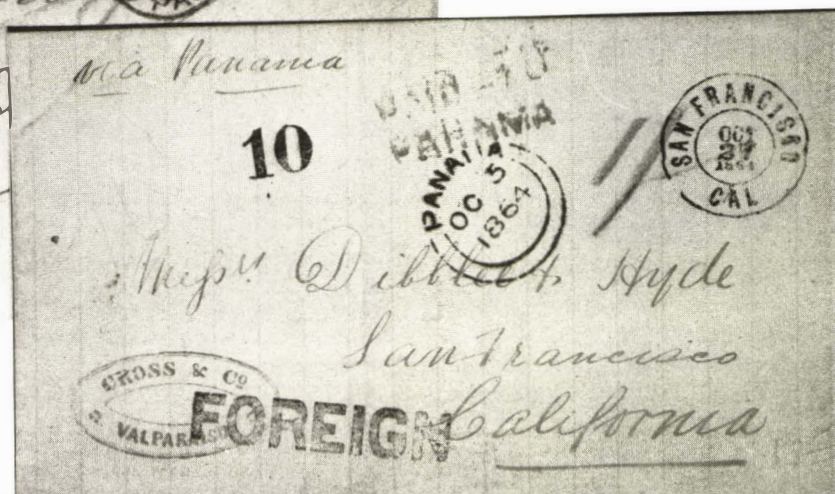 via Panama
10
PAID TO
PANAMA
PANAMA
OC 5
1864
SAN FRANCISCO
OCT
1864
CAL
Messrs Dibblee & Hyde
San Francisco
California
CROSS & Co
VALPARAISO
FOREIGN